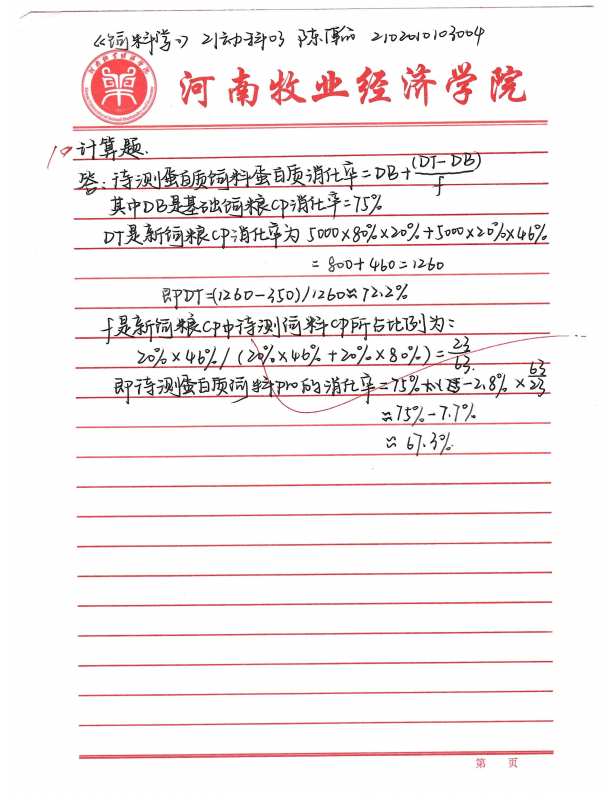 《饲料学》 21动科03 陈 2102010103004
河南牧业经济学院
计算题.
答:待测蛋白质饲料蛋白质消化率=DB+(DT-DB)/f
其中DB是基础饲粮CP消化率=75%
DT是新饲粮CP消化率为 5000×80%×20%+5000×20%×46%
=800+460=1260
即DT=(1260-350)/1260≈72.2%
f是新饲粮CP中待测饲料CP所占比例为:
20%×46%/(20%×46%+20%×80%)=23/63.
即待测蛋白质饲料pro的消化率=75% -2.8%×63/23
≈75%-7.7%
≈67.3%.
第 页